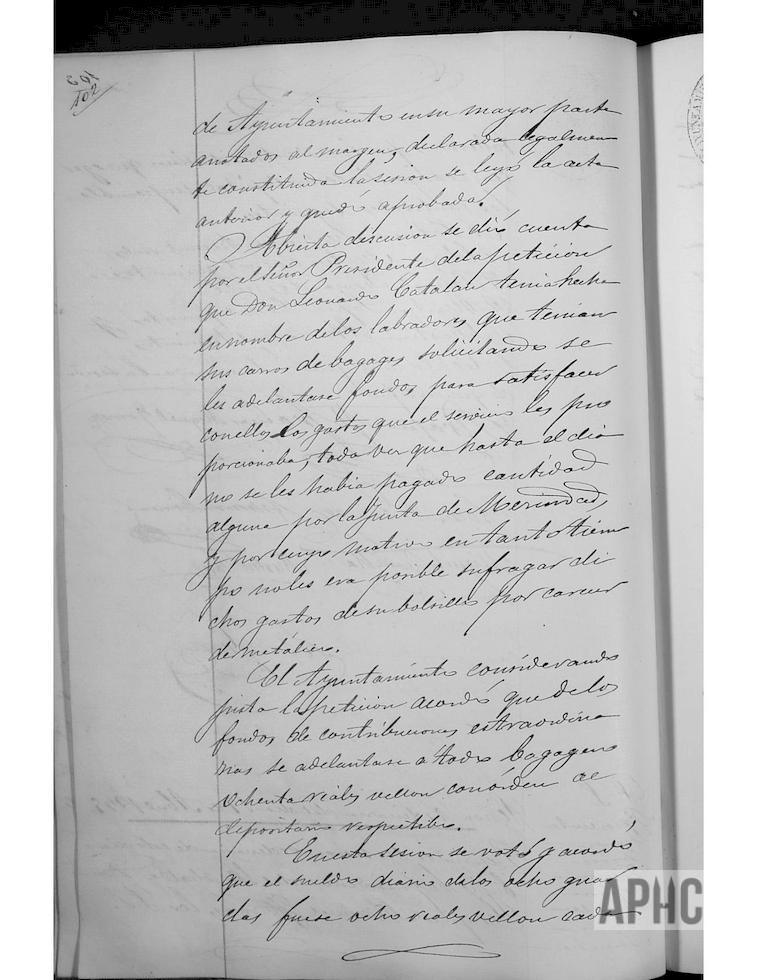 102
de Ayuntamiento en su mayor parte
anotados al margen, declarada legalmen
te constituida la sesion se leyó la acta
anterior y quedó aprobada.
Abierta discusion se dió cuenta
por el Señor Presidente de la peticion
que Don Leonardo Catalan tenia hecha
en nombre de los labradores que tenian
sus carros de bagages solicitando se
les adelantase fondos para satisfacer
con ellos los gastos que el servicio les pro
porcionaba, toda vez que hasta el dia
no se les habia pagado cantidad
alguna por la Junta de Merindad,
y por cuyo motivo en tanto tiem
po no les era posible sufragar di
chos gastos de su bolsillo por carecer
de metálico.
El Ayuntamiento considerando
justa la peticion acordó que de los
fondos de contribuciones estraordina
rias se adelantase á todo bagagero
ochenta reales vellon con órden al
depositario respectibo.
En esta sesion se votó y acordó
que el sueldo diario de los ocho guar
das fuese ocho reales vellon cada
APHC